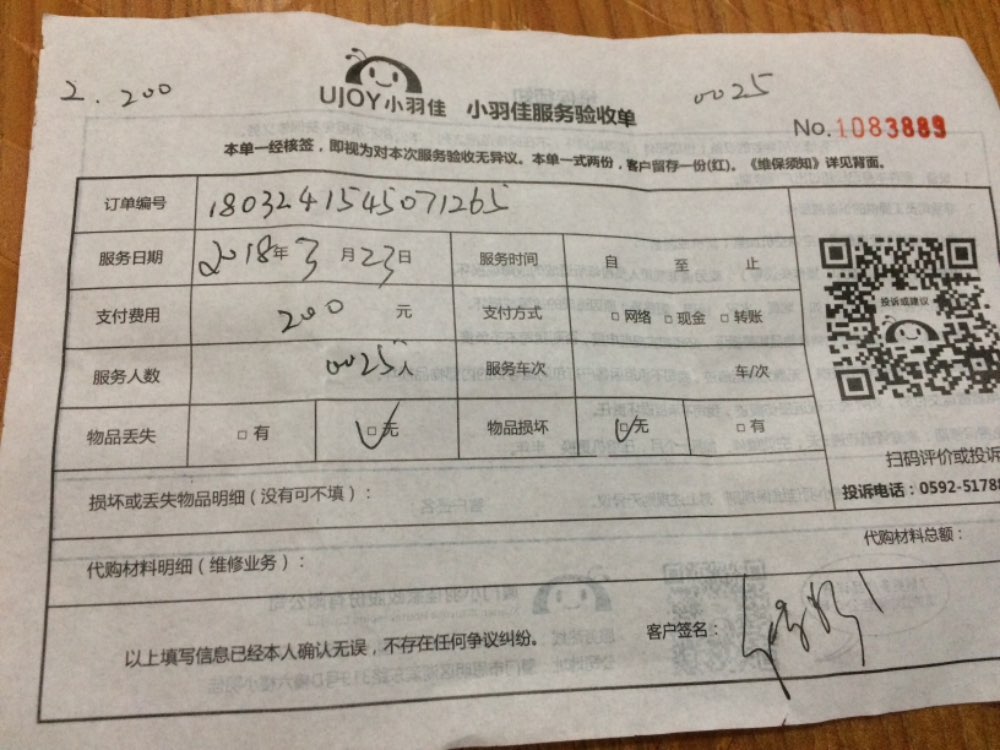 2.200
0025
UJOY小羽佳 小羽佳服务验收单
No.1083889
本单一经核签，即视为对本次服务验收无异议。本单一式两份，客户留存一份(红)。《维保须知》详见背面。
订单编号 1803241545071265
服务日期 2018年3月23日 服务时间 自 至 止
支付费用 200 元 支付方式 □网络 □现金 □转账
投诉或建议
服务人数 0025 服务车次 车/次
物品丢失 □有 □无 物品损坏 □无 □有
扫码评价或投诉
损坏或丢失物品明细（没有可不填）：
投诉电话：0592-51788
代购材料明细（维修业务）：
代购材料总额：
以上填写信息已经本人确认无误，不存在任何争议纠纷。
客户签名：